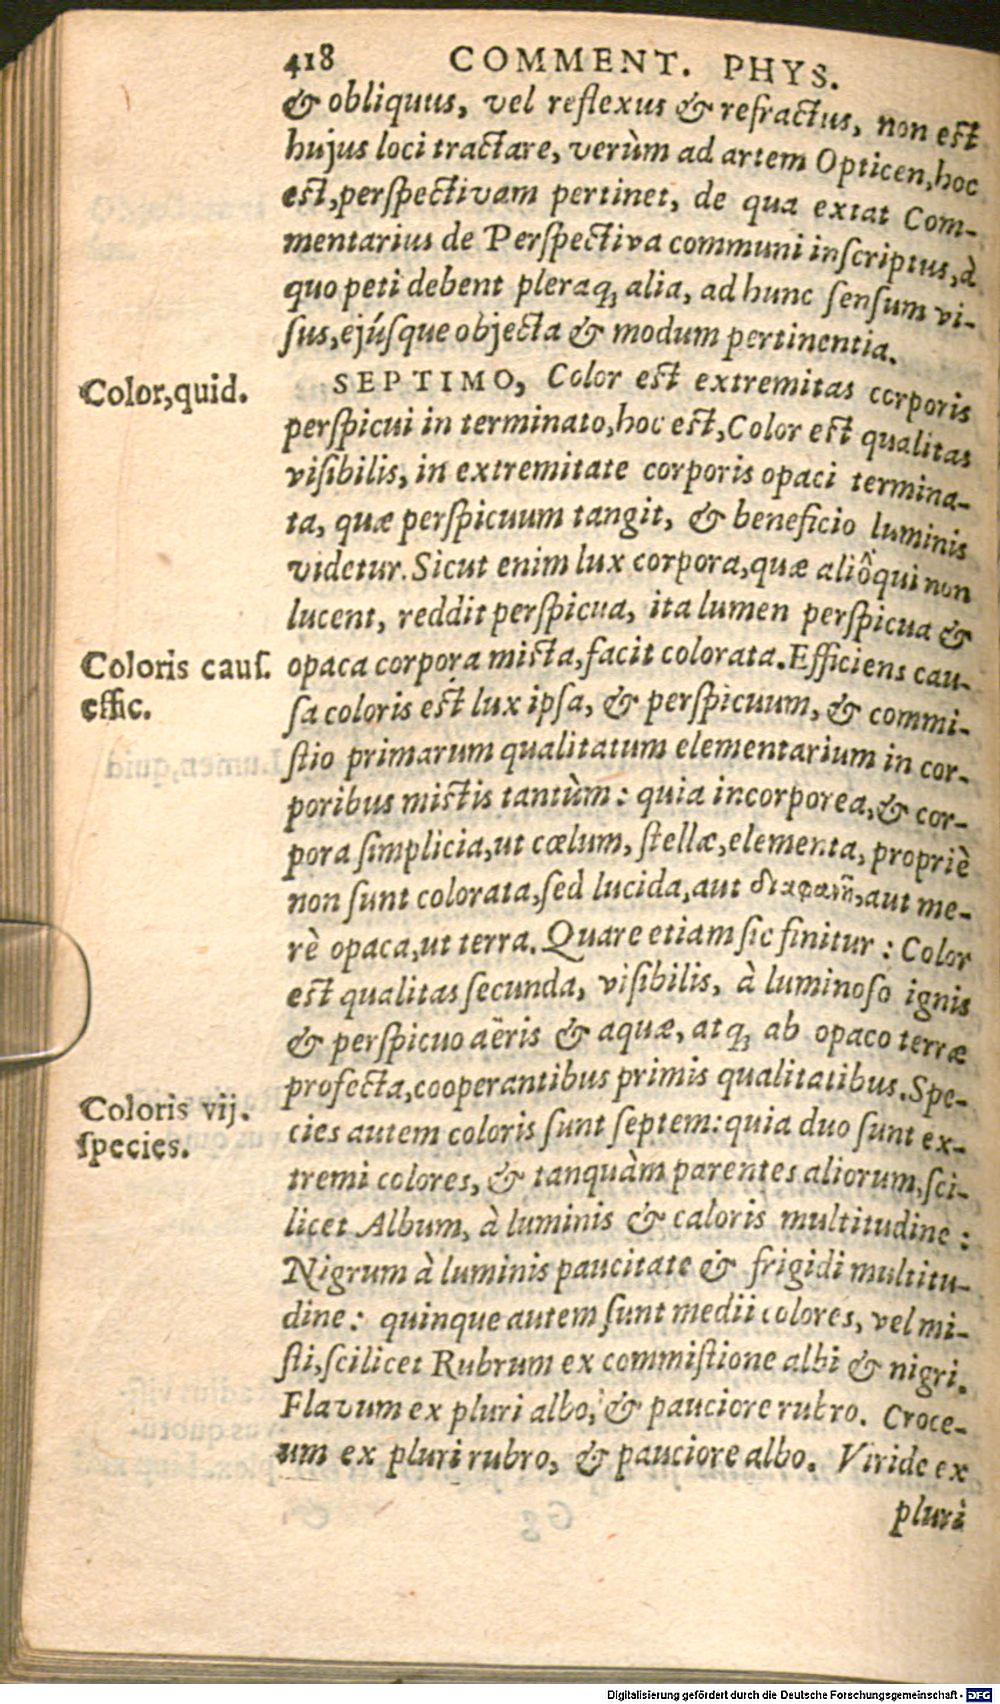 418 COMMENT. PHYS.
& obliquus, vel reflexus & refractus, non est
hujus loci tractare, verùm ad artem Opticen, hoc
est, perspectivam pertinet, de qua extat Com-
mentarius de Perspectiva communi inscriptus, à
quo peti debent pleraq; alia, ad hunc sensum vi-
sus, ejúsque objecta & modum pertinentia.
Color, quid.
SEPTIMO, Color est extremitas corporis
perspicui in terminato, hoc est, Color est qualitas
visibilis, in extremitate corporis opaci termina-
ta, quæ perspicuum tangit, & beneficio luminis
videtur. Sicut enim lux corpora, quæ aliôqui non
lucent, reddit perspicua, ita lumen perspicua &
Coloris caus. effic.
opaca corpora mista, facit colorata. Efficiens cau-
sa coloris est lux ipsa, & perspicuum, & commi-
stio primarum qualitatum elementarium in cor-
poribus mistis tantùm: quia incorporea, & cor-
pora simplicia, ut cœlum, stellæ, elementa, propriè
non sunt colorata, sed lucida, aut aut me-
rè opaca, ut terra. Quare etiam sic finitur: Color
est qualitas secunda, visibilis, à luminoso ignis
& perspicuo aëris & aquæ, atq; ab opaco terræ
profecta, cooperantibus primis qualitatibus. Spe-
Coloris vij. species.
cies autem coloris sunt septem: quia duo sunt ex-
tremi colores, & tanquàm parentes aliorum, sci-
licet Album, à luminis & caloris multitudine:
Nigrum à luminis paucitate & frigidi multitu-
dine: quinque autem sunt medii colores, vel mi-
sti, scilicet Rubrum ex commistione albi & nigri.
Flavum ex pluri albo, & pauciore rubro. Croce-
um ex pluri rubro, & pauciore albo. Viride ex
pluri
Digitalisierung gefördert durch die Deutsche Forschungsgemeinschaft - DFG